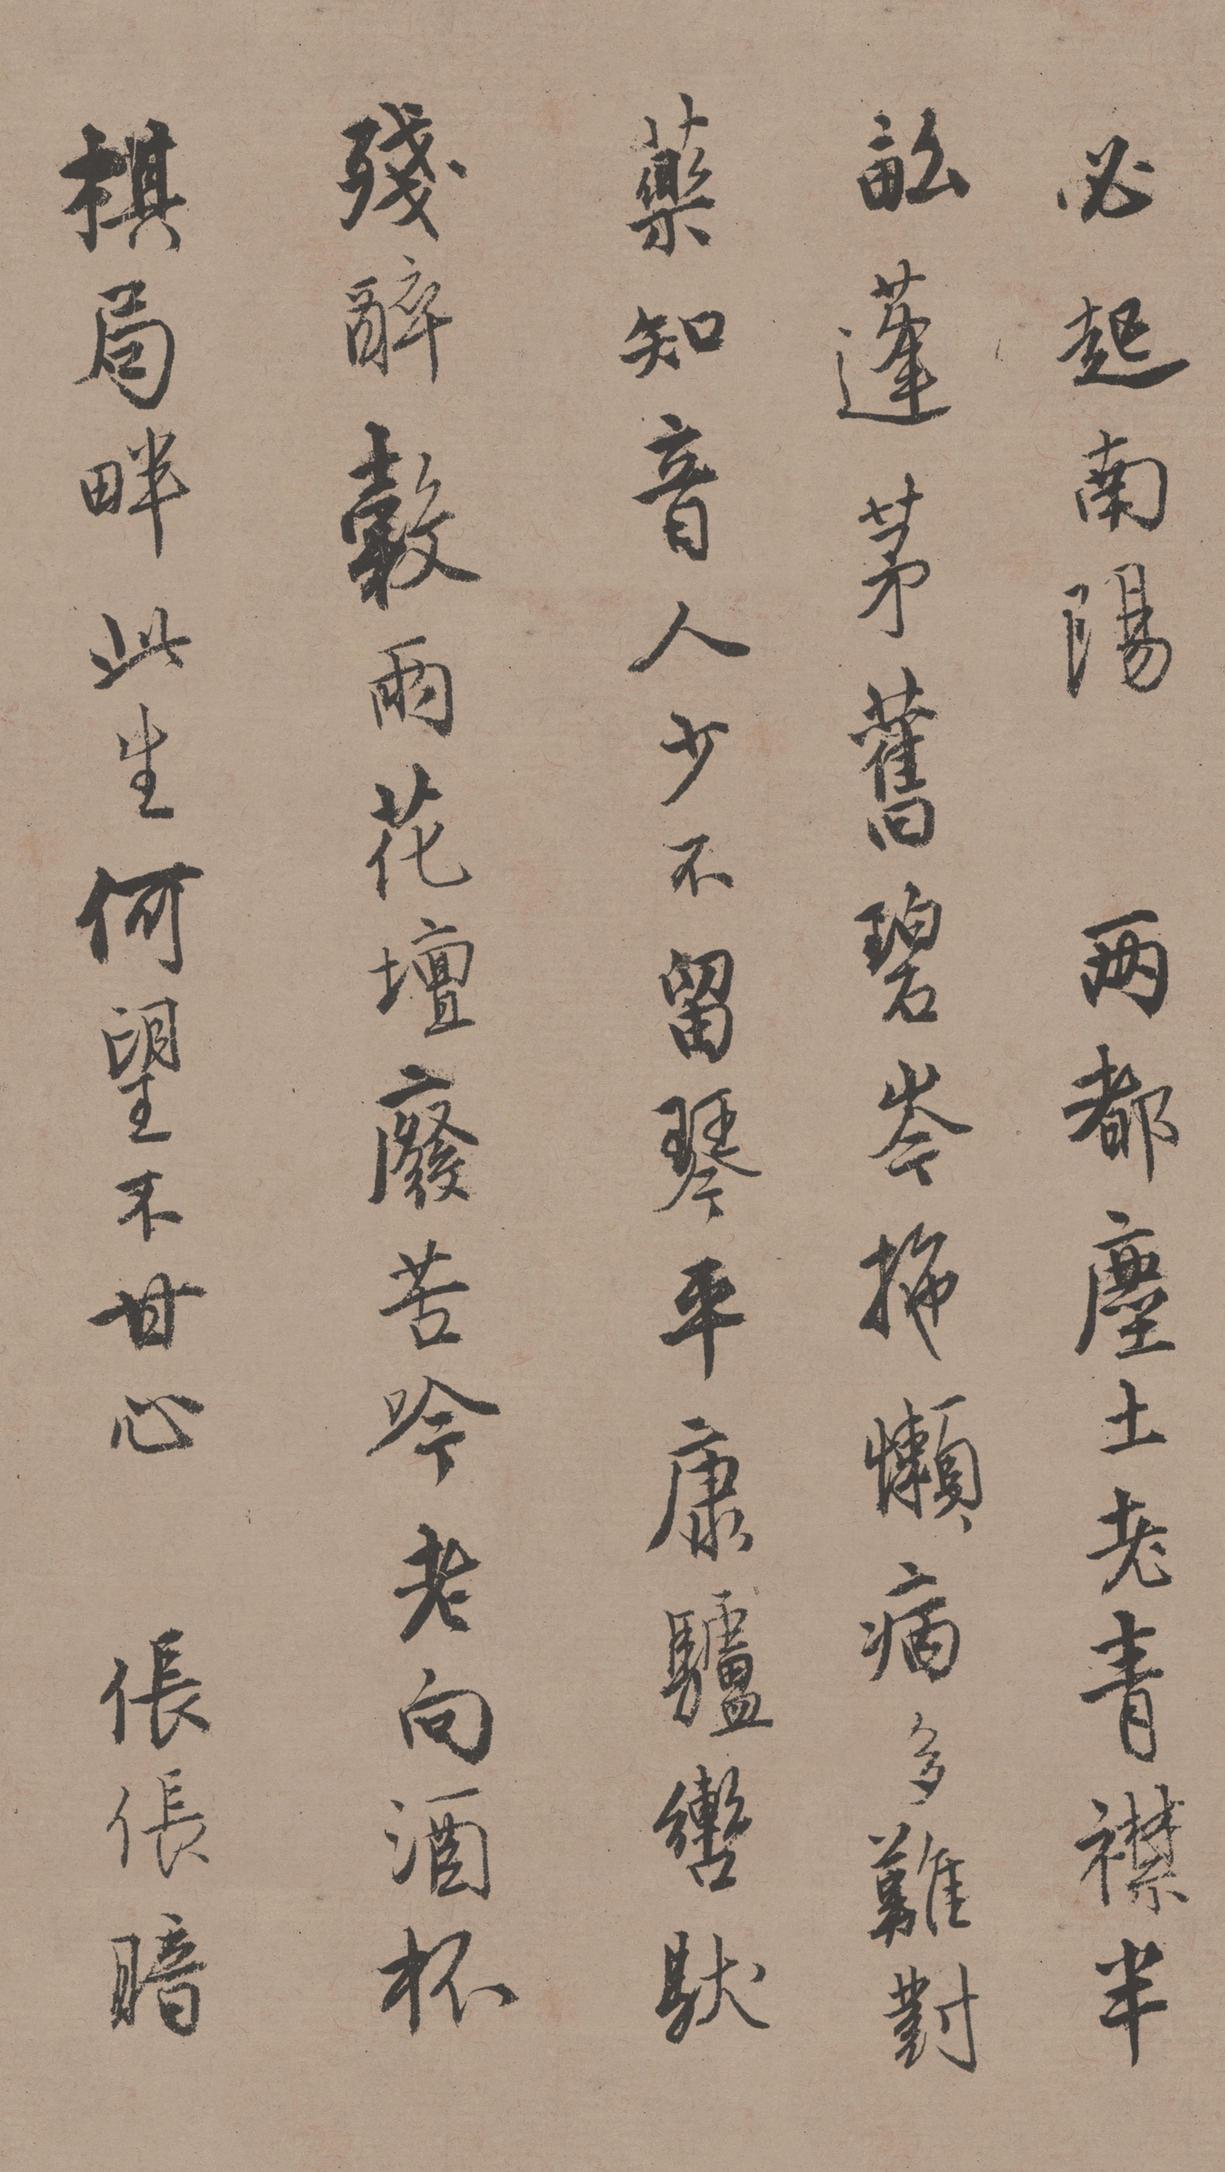 必起南陽　兩都塵土老青襟半
畝蓬茅舊碧岑拖懶病多難對
藥知音人少不留琴平康驢轡馱
殘醉穀雨花壇廢苦吟老向酒杯
棋局畔此生何望不甘心　倀倀暗